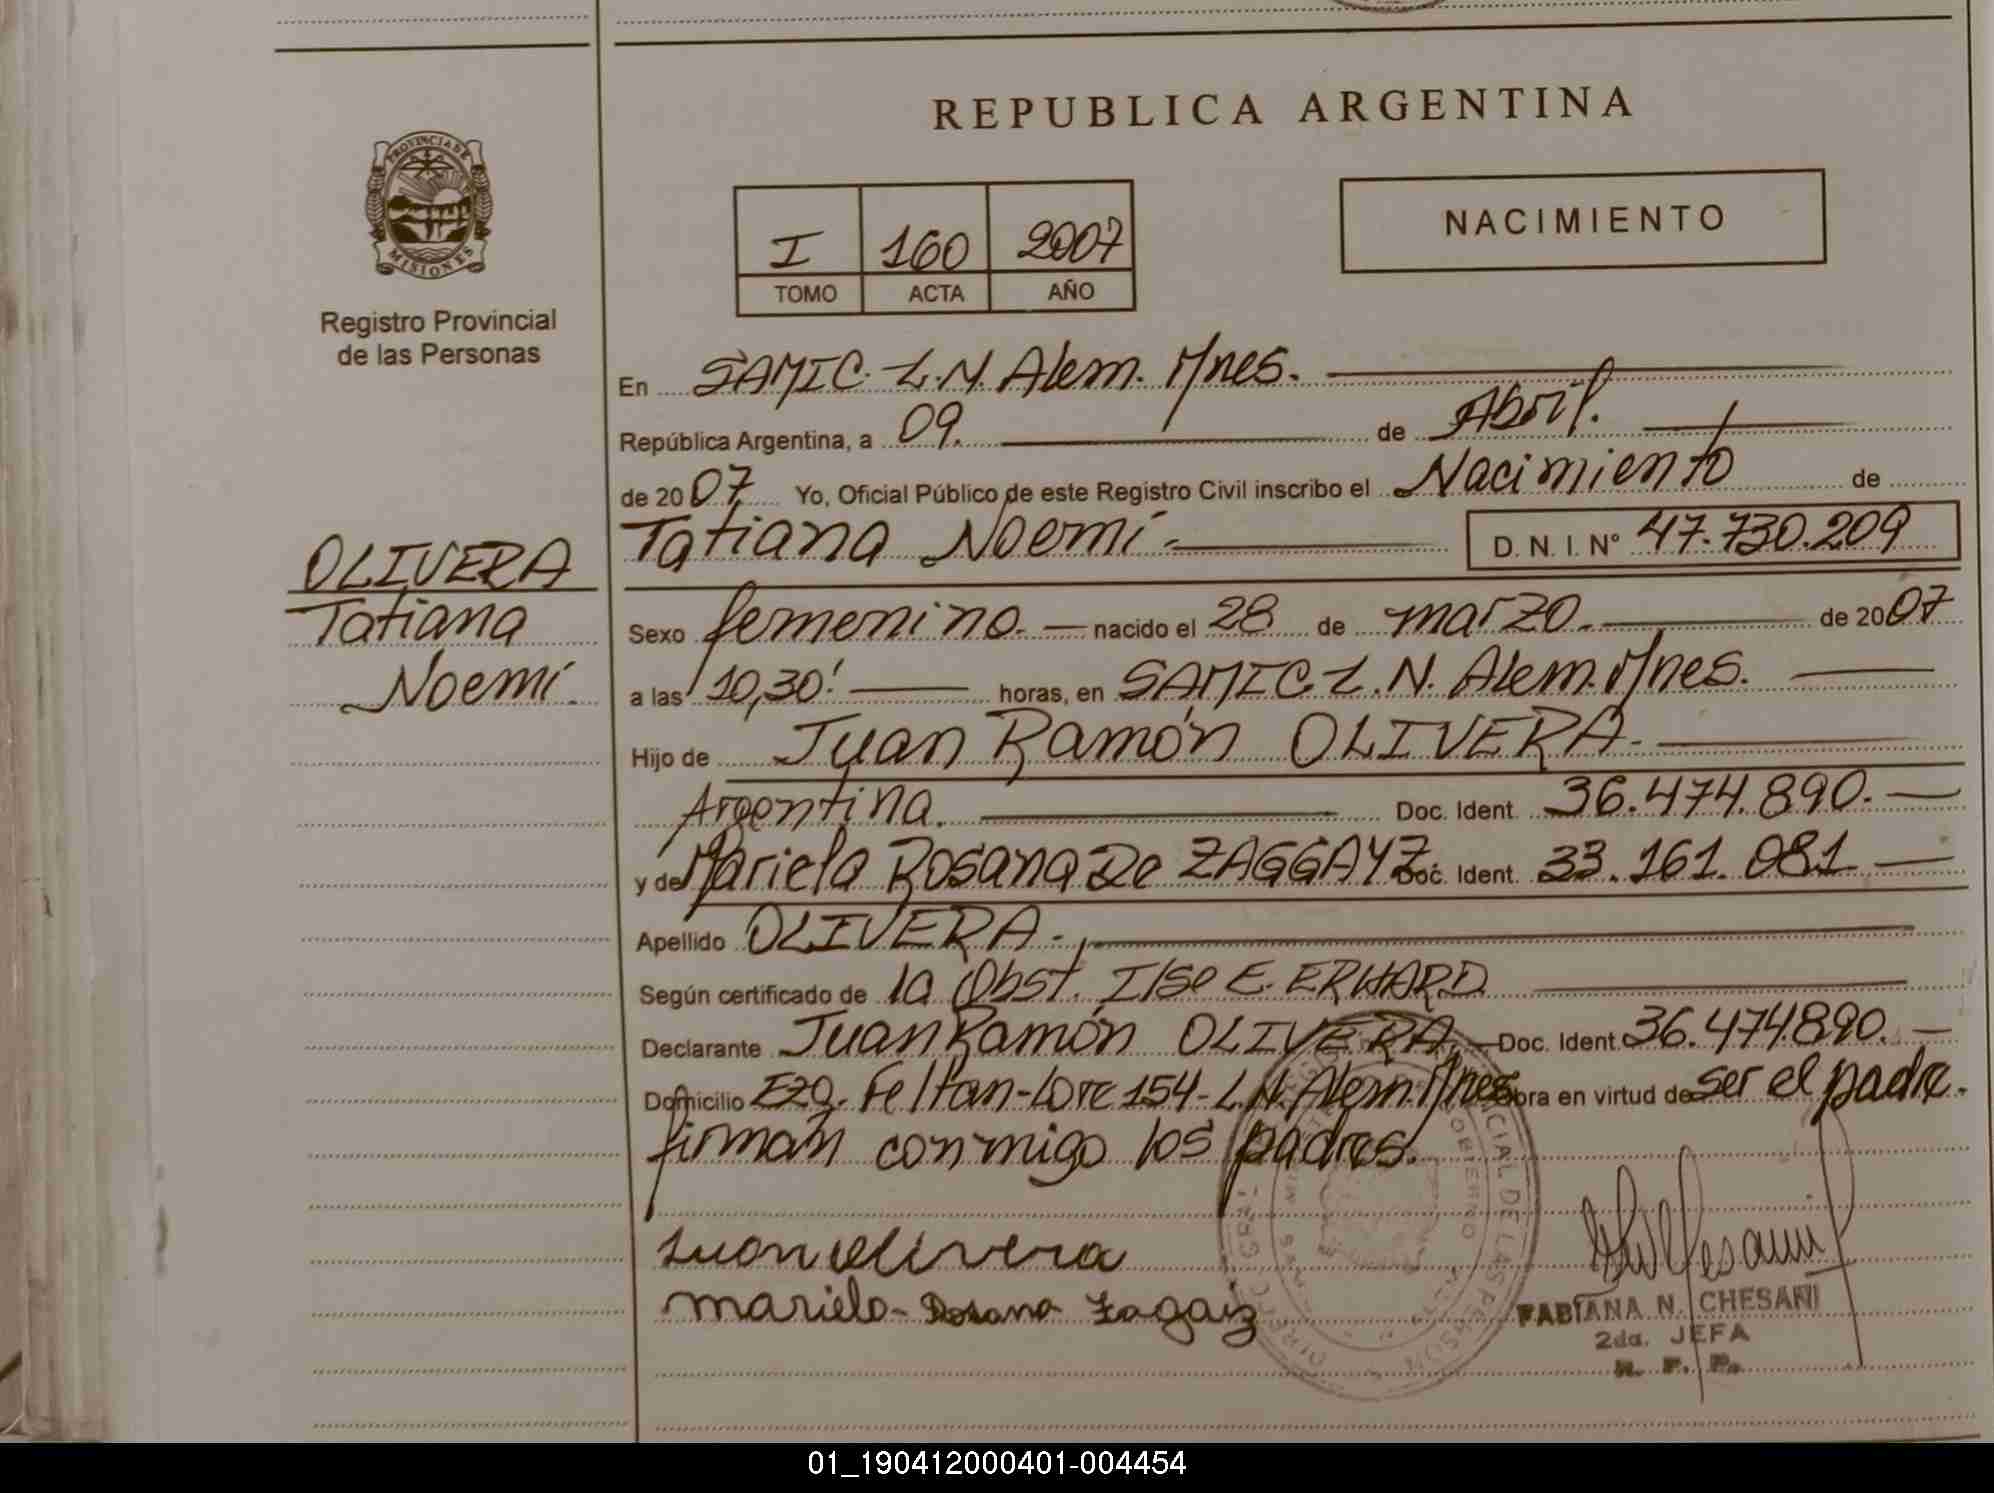 REPUBLICA ARGENTINA
PROVINCIA DE
MISIONES
Registro Provincial
de las Personas
NACIMIENTO
I 160 2007
TOMO ACTA AÑO
En SAMIC. L.N. Alem. Mnes.
República Argentina, a 09. de Abril.
de 2007. Yo, Oficial Público de este Registro Civil inscribo el Nacimiento de
Tatiana Noemí.- D. N. I. Nº 47.730.209
OLIVERA
Tatiana
Noemí.
Sexo femenino.- nacido el 28 de marzo. de 2007
a las 10,30! horas, en SAMIC. L.N. Alem. Mnes.
Hijo de Juan Ramón OLIVERA.
Argentina. Doc. Ident. 36.474.890.-
y de Mariela Rosana De ZAGGAYZ Doc. Ident. 33.161.081-
Apellido OLIVERA.-
Según certificado de la Obst. Ilse E. ERHARD
Declarante Juan Ramón OLIVERA.- Doc. Ident. 36.474.890.-
Domicilio Ezq. Feltan-Lote 154-L.N. Alem. Mnes. obra en virtud de ser el padre.
firman conmigo los padres.
Juan Olivera
Mariela-Rosana Zagaiz
FABIANA N. CHESANI
2da. JEFA
R. P. P.
01_190412000401-004454